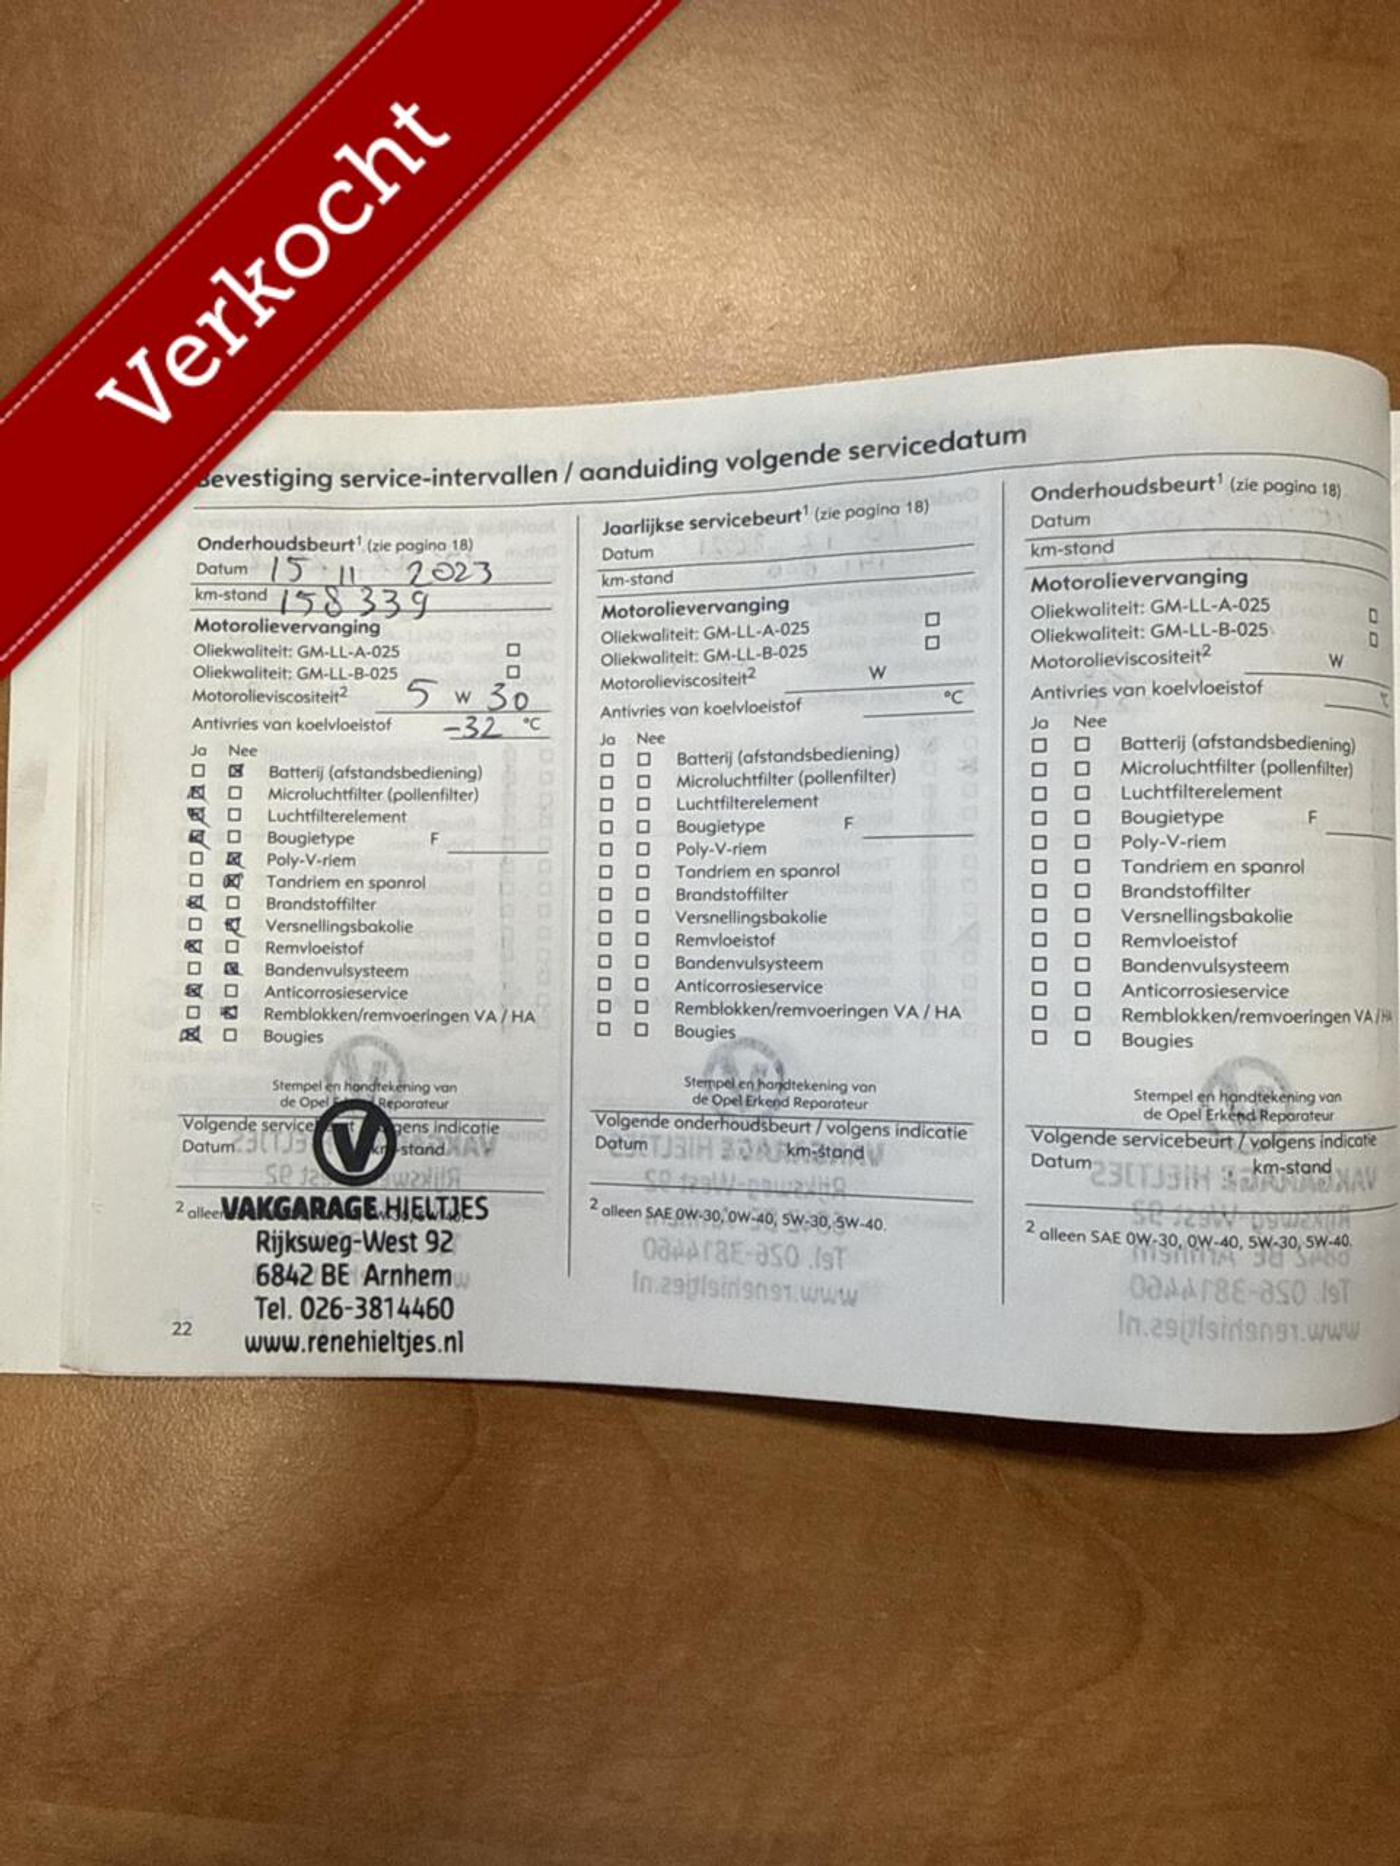 Verkocht
Bevestiging service-intervallen / aanduiding volgende servicedatum
Onderhoudsbeurt¹ (zie pagina 18)
Datum 15 · 11 2023
km-stand 158339
Motorolievervanging
Oliekwaliteit: GM-LL-A-025
Oliekwaliteit: GM-LL-B-025
Motorolieviscositeit² 5 W 30
Antivries van koelvloeistof -32 °C
Ja Nee
Batterij (afstandsbediening)
Microluchtfilter (pollenfilter)
Luchtfilterelement
Bougietype F
Poly-V-riem
Tandriem en spanrol
Brandstoffilter
Versnellingsbakolie
Remvloeistof
Bandenvulsysteem
Anticorrosieservice
Remblokken/remvoeringen VA / HA
Bougies
Stempel en handtekening van
de Opel Reparateur
Volgende service indicatie
Datum km-stand
² alleen
VAKGARAGE HIELTJES
Rijksweg-West 92
6842 BE Arnhem
Tel. 026-3814460
www.renehieltjes.nl
22
Jaarlijkse servicebeurt¹ (zie pagina 18)
Datum
km-stand
Motorolievervanging
Oliekwaliteit: GM-LL-A-025
Oliekwaliteit: GM-LL-B-025
Motorolieviscositeit² W
Antivries van koelvloeistof °C
Ja Nee
Batterij (afstandsbediening)
Microluchtfilter (pollenfilter)
Luchtfilterelement
Bougietype F
Poly-V-riem
Tandriem en spanrol
Brandstoffilter
Versnellingsbakolie
Remvloeistof
Bandenvulsysteem
Anticorrosieservice
Remblokken/remvoeringen VA / HA
Bougies
Stempel en handtekening van
de Opel Erkend Reparateur
Volgende onderhoudsbeurt / volgens indicatie
Datum km-stand
² alleen SAE 0W-30, 0W-40, 5W-30, 5W-40.
Onderhoudsbeurt¹ (zie pagina 18)
Datum
km-stand
Motorolievervanging
Oliekwaliteit: GM-LL-A-025
Oliekwaliteit: GM-LL-B-025
Motorolieviscositeit² W
Antivries van koelvloeistof
Ja Nee
Batterij (afstandsbediening)
Microluchtfilter (pollenfilter)
Luchtfilterelement
Bougietype F
Poly-V-riem
Tandriem en spanrol
Brandstoffilter
Versnellingsbakolie
Remvloeistof
Bandenvulsysteem
Anticorrosieservice
Remblokken/remvoeringen VA / HA
Bougies
Stempel en handtekening van
de Opel Erkend Reparateur
Volgende servicebeurt / volgens indicatie
Datum km-stand
² alleen SAE 0W-30, 0W-40, 5W-30, 5W-40.